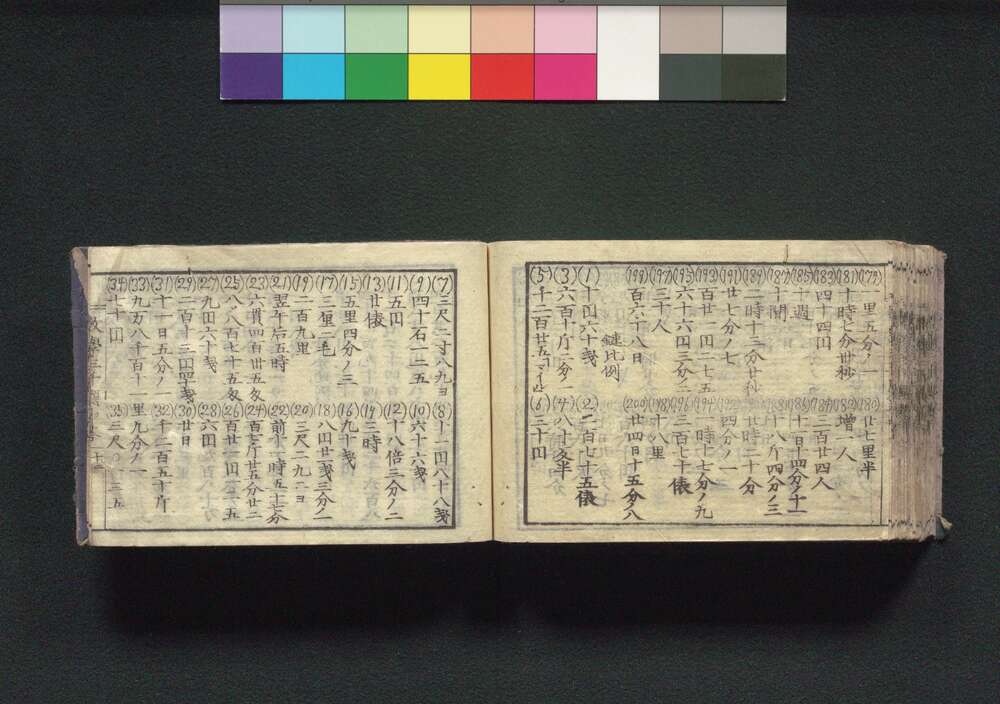 (179) 一里五分ノ一 (180) 廿七里半
(181) 十時七分卅秒 (182) 増一人
(183) 四十四円 (184) 二百廿四人
(185) 十週 (186) 十日十四分ノ十一
(187) 十間 (188) 十八斤四分ノ三
(189) 二時十三分廿秒
(191) 廿七分ノ七
(193) 百廿一円二七五
(195) 六十六円三分ノ二 (196) 三百七十俵
(197) 三十人 (198) 十八里
(199) 百六十八日 (200) 廿四日十五分ノ八
鏈比例
(1) 十円六十銭 (2) 二百七十五俵
(3) 六百十斤二分ノ一 (4) 八十反半
(5) 千二百廿五 (6) 三十円
(7) 三尺二寸八九ヨ (8) 十一円八十八銭
(9) 四十石一二五 (10) 六十六銭
(11) 五円 (12) 十八倍三分ノ二
(13) 廿俵 (14) 三時
(15) 五里四分ノ三 (16) 九十銭
(17) 三厘二毛 (18) 八円廿一銭三分ノ一
(19) 二百九里 (20) 三尺二九二ヨ
(21) 翌午后五時 (22) 前十一時五十七分
(23) 六貫四百卅五匁 (24) 百七斤廿五分廿二
(25) 八八百七十五匁 (26) 百廿一円二七五
(27) 九円六十銭 (28) 六円
(29) 二百十三円四十銭 (30) 廿日
(31) 十一日五分ノ一 (32) 二百五十斤
(33) 九万八千百十一里九分ノ一
(34) 七十円 (35) 三尺〇一三五